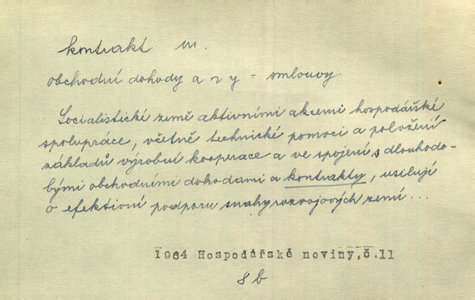 kontrakt m.
obchodní dohody a n y - smlouvy
Socialistické země aktivními akcemi hospodářské
spolupráce, včetně technické pomoci a položení
základů výrobní kooperace a ve spojení s dlouhodo-
bými obchodními dohodami a kontrakty, usilují
o efektivní podporu snahy rozvojových zemí ...
1964 Hospodářské noviny, č.11
8b